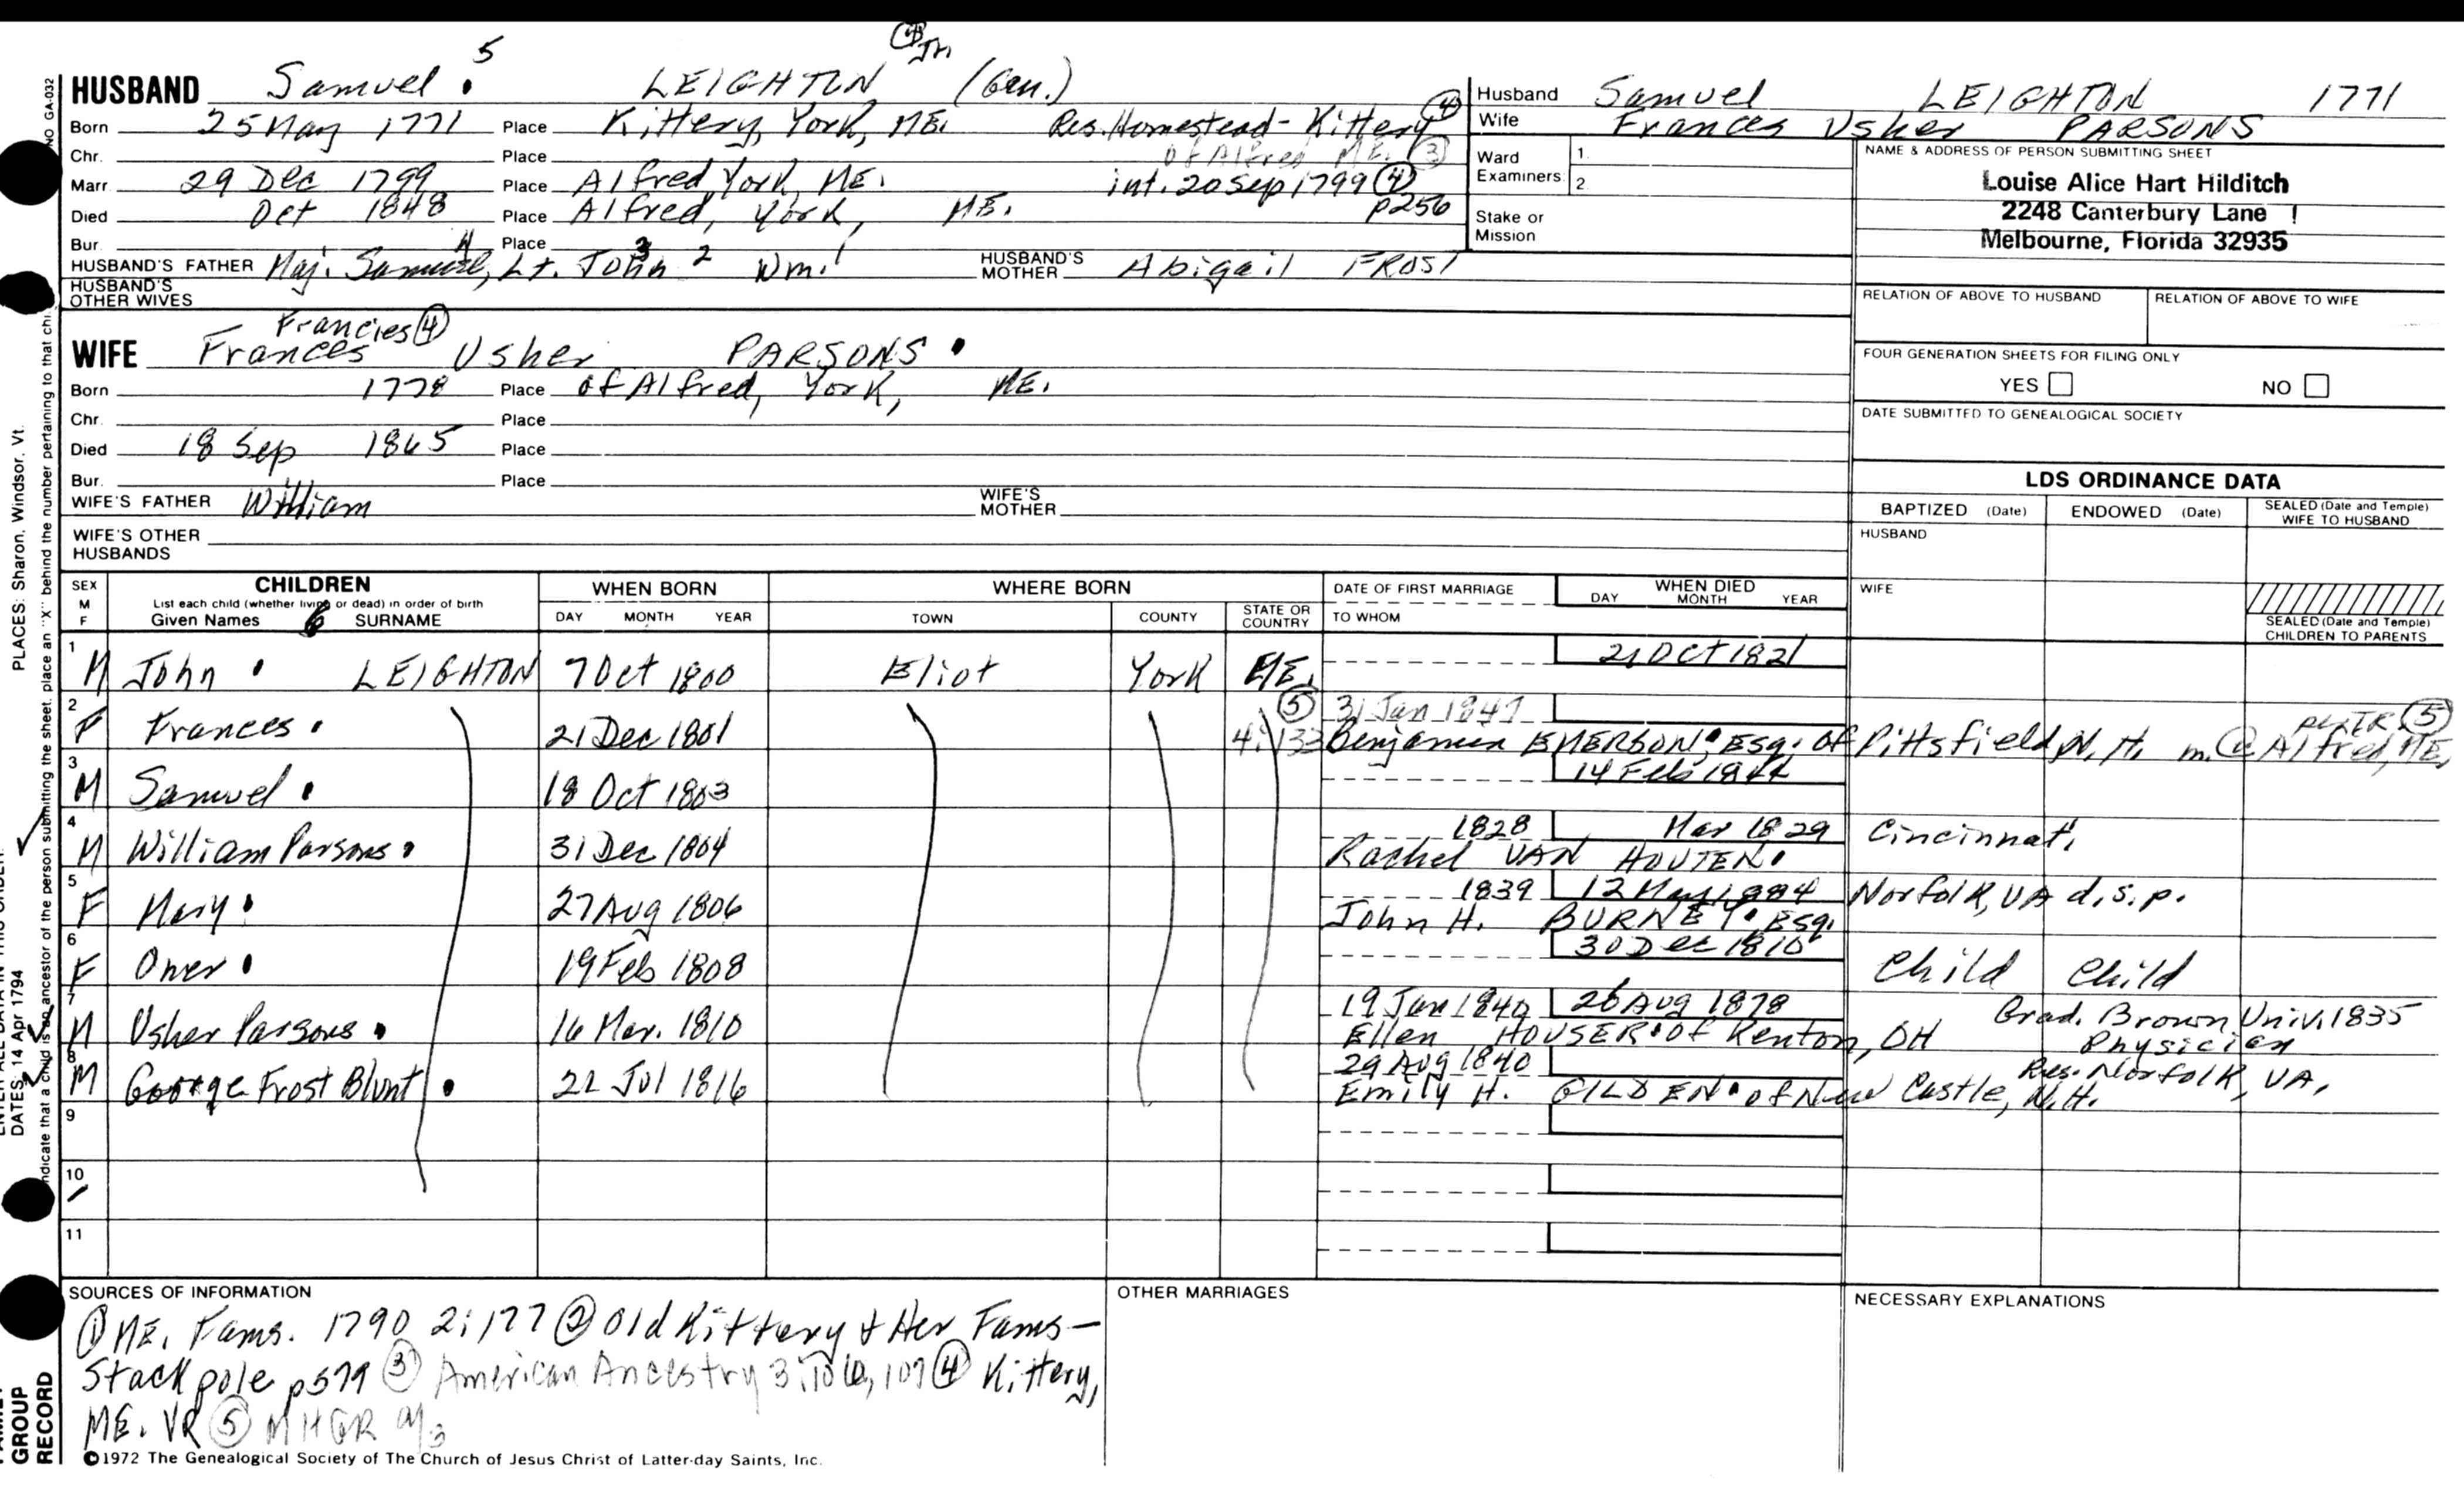 ④ Jr.
HUSBAND Samuel 5 LEIGHTON (Gen.)
Born 25 May 1771 Place Kittery, York, ME. Res. Homestead - Kittery ④
Chr. Place of Alfred ME. ③
Marr. 29 Dec 1799 Place Alfred York, ME. int. 20 Sep 1799 ④
Died Oct 1848 Place Alfred, York, ME. p256
Bur. Place
HUSBAND'S FATHER Maj. Samuel, 4 Lt. John 3 2 Wm. 1 HUSBAND'S MOTHER Abigail FROST
HUSBAND'S OTHER WIVES
Husband Samuel LEIGHTON 1771
Wife Frances Usher PARSONS
Ward 1.
Examiners: 2.
Stake or
Mission
NAME & ADDRESS OF PERSON SUBMITTING SHEET
Louise Alice Hart Hilditch
2248 Canterbury Lane
Melbourne, Florida 32935
RELATION OF ABOVE TO HUSBAND RELATION OF ABOVE TO WIFE
Francies ④
WIFE Frances Usher PARSONS
Born 1778 Place of Alfred, York, ME.
Chr. Place
Died 18 Sep 1865 Place
Bur. Place
WIFE'S FATHER William WIFE'S MOTHER
WIFE'S OTHER
HUSBANDS
FOUR GENERATION SHEETS FOR FILING ONLY
YES NO
DATE SUBMITTED TO GENEALOGICAL SOCIETY
LDS ORDINANCE DATA
BAPTIZED (Date) ENDOWED (Date) SEALED (Date and Temple) WIFE TO HUSBAND
HUSBAND
WIFE
SEALED (Date and Temple)
CHILDREN TO PARENTS
SEX M F CHILDREN WHEN BORN WHERE BORN DATE OF FIRST MARRIAGE WHEN DIED
List each child (whether living or dead) in order of birth
Given Names SURNAME DAY MONTH YEAR TOWN COUNTY STATE OR COUNTRY TO WHOM DAY MONTH YEAR
1 M John LEIGHTON 7 Oct 1800 Eliot York ME. 21 Oct 1821
2 ⑤ 31 Jan 1847
F Frances 21 Dec 1801 4:133 Benjamin EMERSON, Esq. of Pittsfield N.H. m. @ Alfred, ME, ⑤
3 M Samuel 18 Oct 1803 14 Feb
4 1828 Mar 1829 Cincinnati
M William Parsons 31 Dec 1804 Rachel VAN HOUTEN
5 1839 12 May 1884 Norfolk, VA d.s.p.
F Mary 27 Aug 1806 John H. BURNEY Esq.
6 30 Dec 1810 Child Child
F Oner 19 Feb 1808
7 19 Jan 1840 26 Aug 1878 Grad. Brown Univ. 1835
M Usher Parsons 16 Mar. 1810 Ellen HOUSER of Kenton, OH Physician
8 29 Aug 1840 Res. Norfolk, VA.
M George Frost Blunt 22 Jul 1816 Emily H. GILDEN of New Castle, N.H.
9
10
11
SOURCES OF INFORMATION
① ME. Fams. 1790 2:177 ② Old Kittery & Her Fams-
Stackpole p579 ③ American Ancestry 3:106, 107 ④ Kittery,
ME. VR ⑤ MHGR
OTHER MARRIAGES
NECESSARY EXPLANATIONS
©1972 The Genealogical Society of The Church of Jesus Christ of Latter-day Saints, Inc.
NO GA-032
PLACES: Sharon, Windsor, Vt.
DATES: 14 Apr 1794
indicate that a child is an ancestor of the person submitting the sheet, place an "X" behind the number pertaining to that
GROUP
RECORD